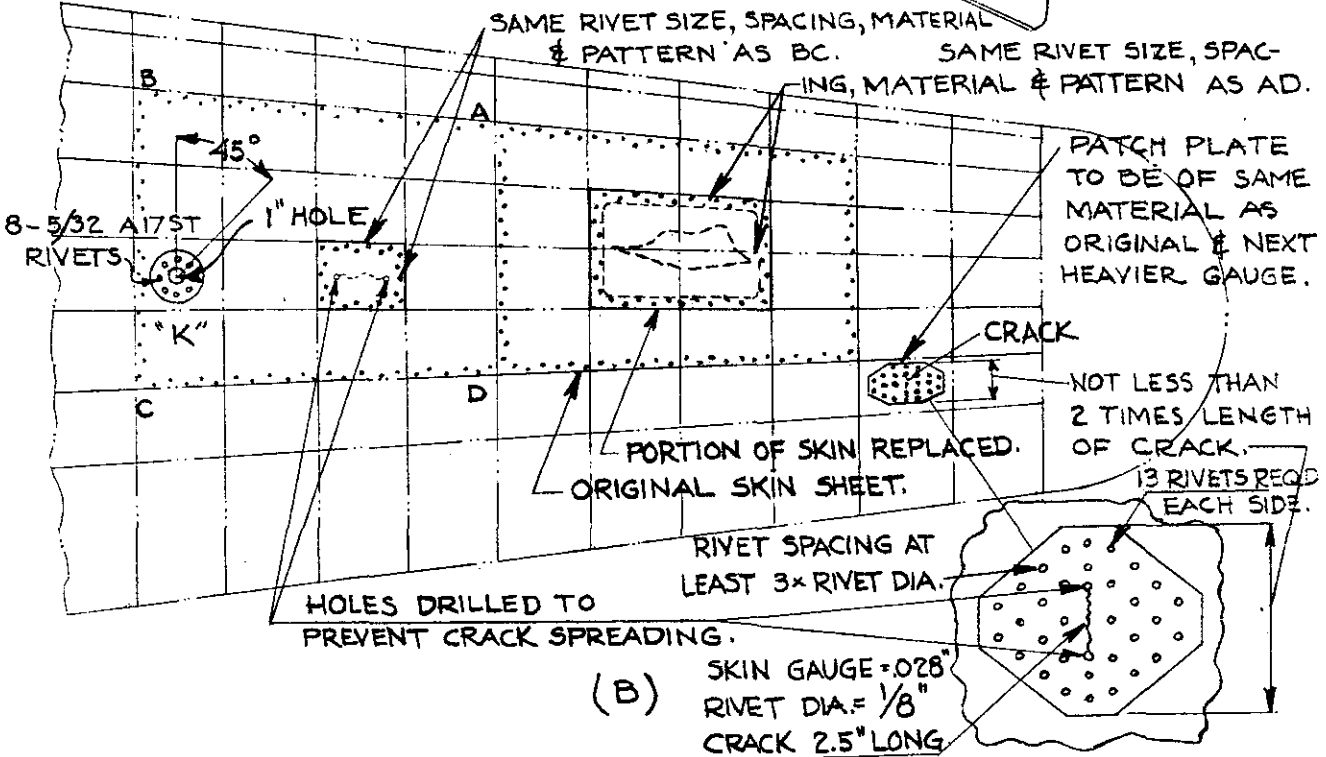 SAME RIVET SIZE, SPACING, MATERIAL
& PATTERN AS BC.
SAME RIVET SIZE, SPAC-
ING, MATERIAL & PATTERN AS AD.
B
A
45°
PATCH PLATE
TO BE OF SAME
MATERIAL AS
ORIGINAL & NEXT
HEAVIER GAUGE.
8-5/32 A17ST
RIVETS
1" HOLE
"K"
CRACK
C
D
NOT LESS THAN
2 TIMES LENGTH
OF CRACK.
PORTION OF SKIN REPLACED.
ORIGINAL SKIN SHEET.
13 RIVETS REQD
EACH SIDE.
RIVET SPACING AT
LEAST 3x RIVET DIA.
HOLES DRILLED TO
PREVENT CRACK SPREADING.
(B)
SKIN GAUGE = .028"
RIVET DIA. = 1/8"
CRACK 2.5" LONG